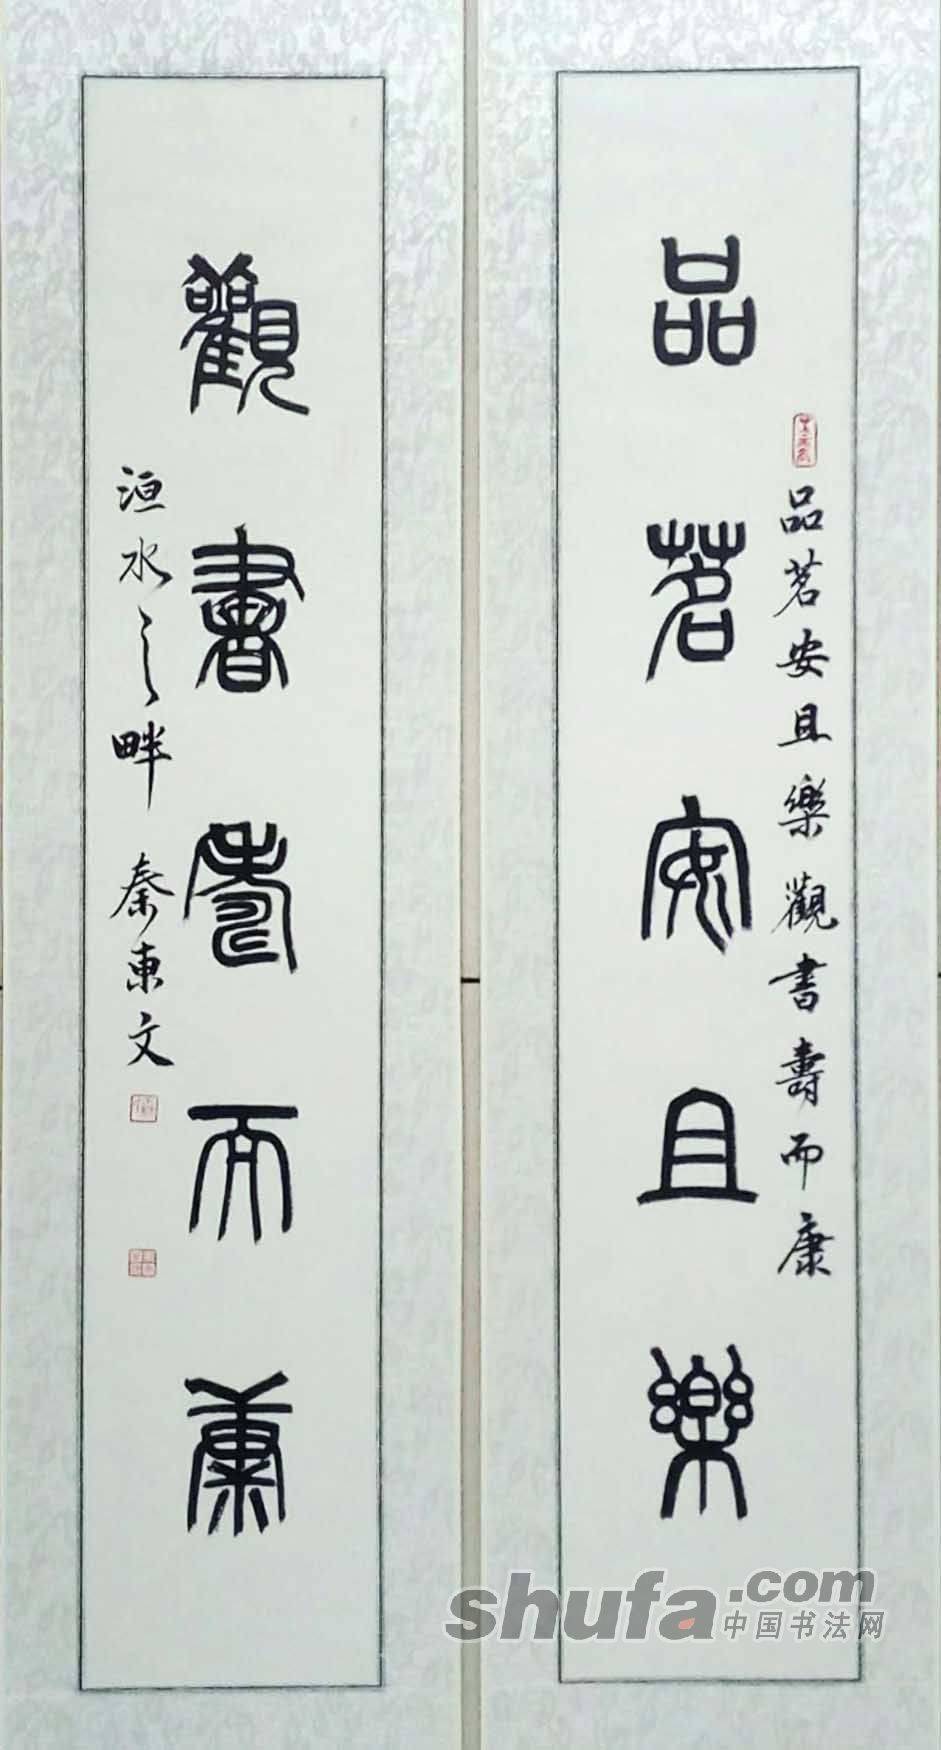 品茗安且樂
品茗安且樂觀書壽而康
觀書壽而康
洹水之畔 秦東文
shufa.com
中国书法网